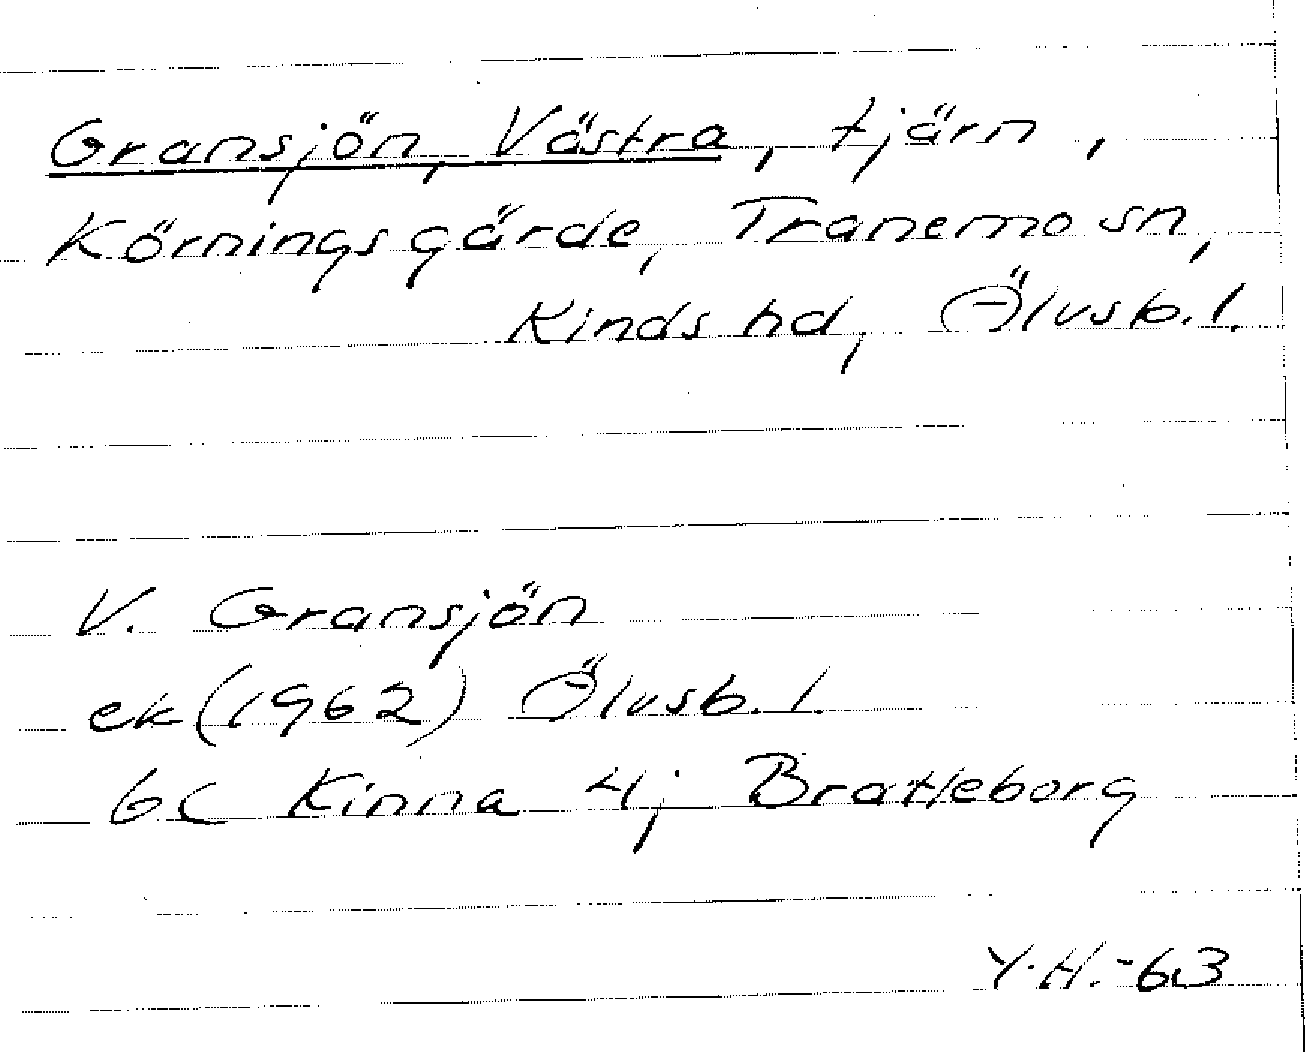 Gransjön, Västra, tjärn,
Körningsgärde, Tranemo sn,
Kinds hd, Älvsb. l.
V. Gransjön
ek (1962) Älvsb. l.
6c Kinna 4j Brattleborg
Y.H.-63